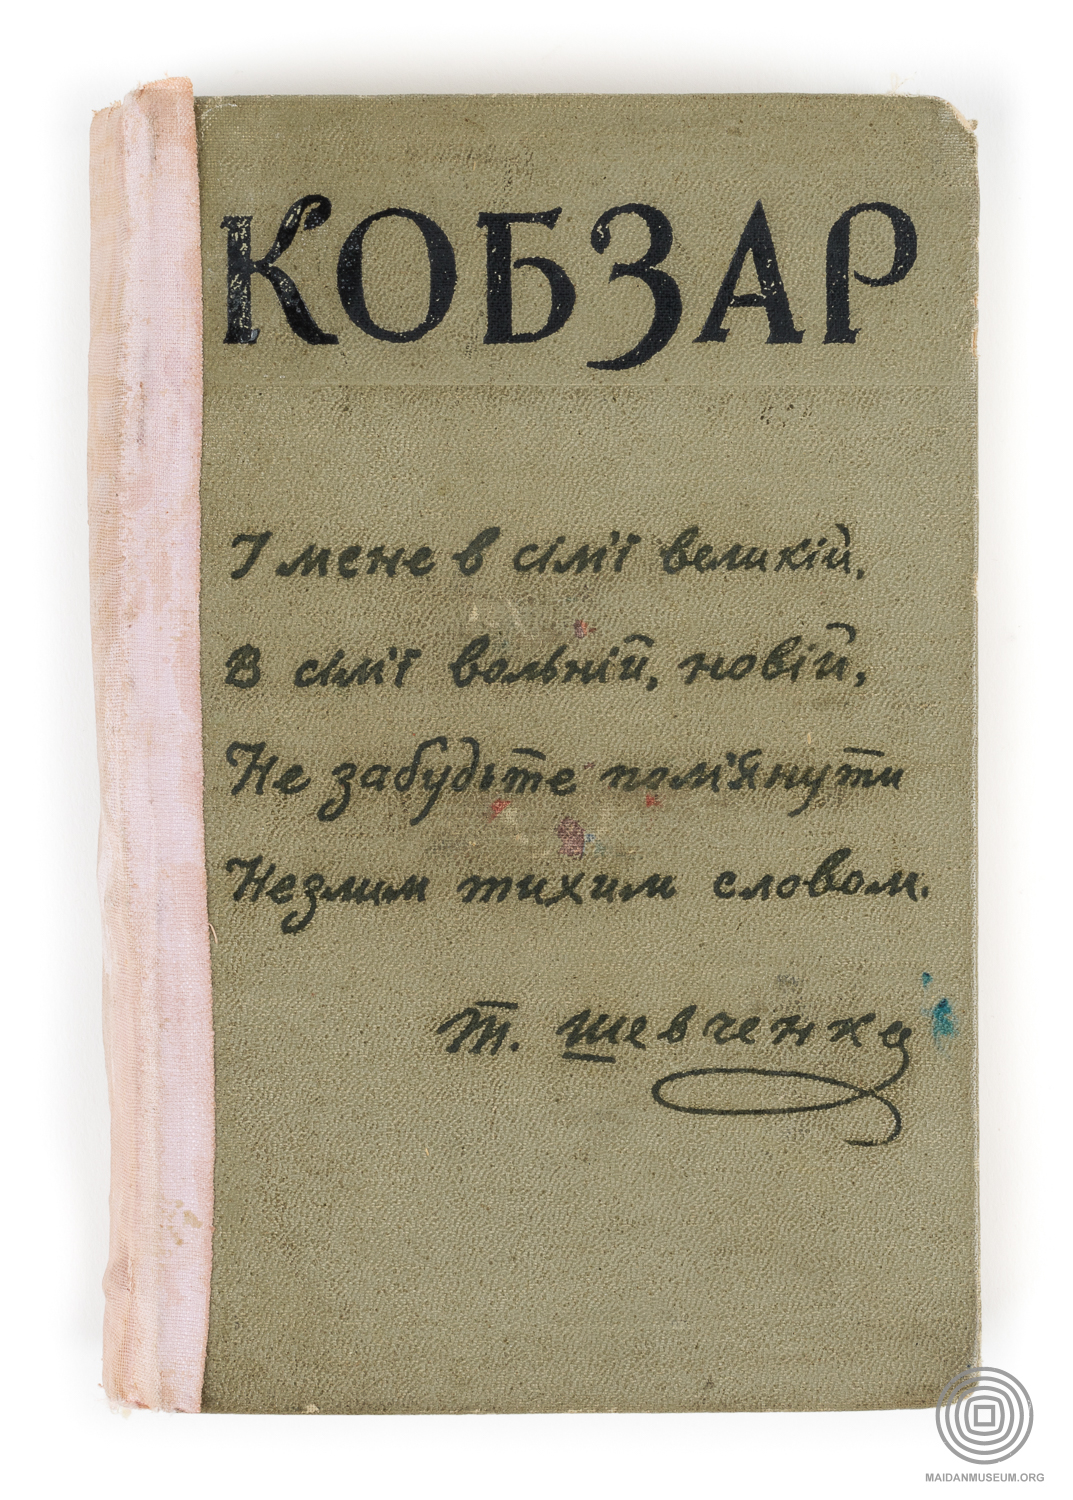 КОБЗАР
І мене в сім'ї великій,
В сім'ї вольній, новій,
Не забудьте пом'янути
Незлим тихим словом.
Т. Шевченко
MAIDANMUSEUM.ORG